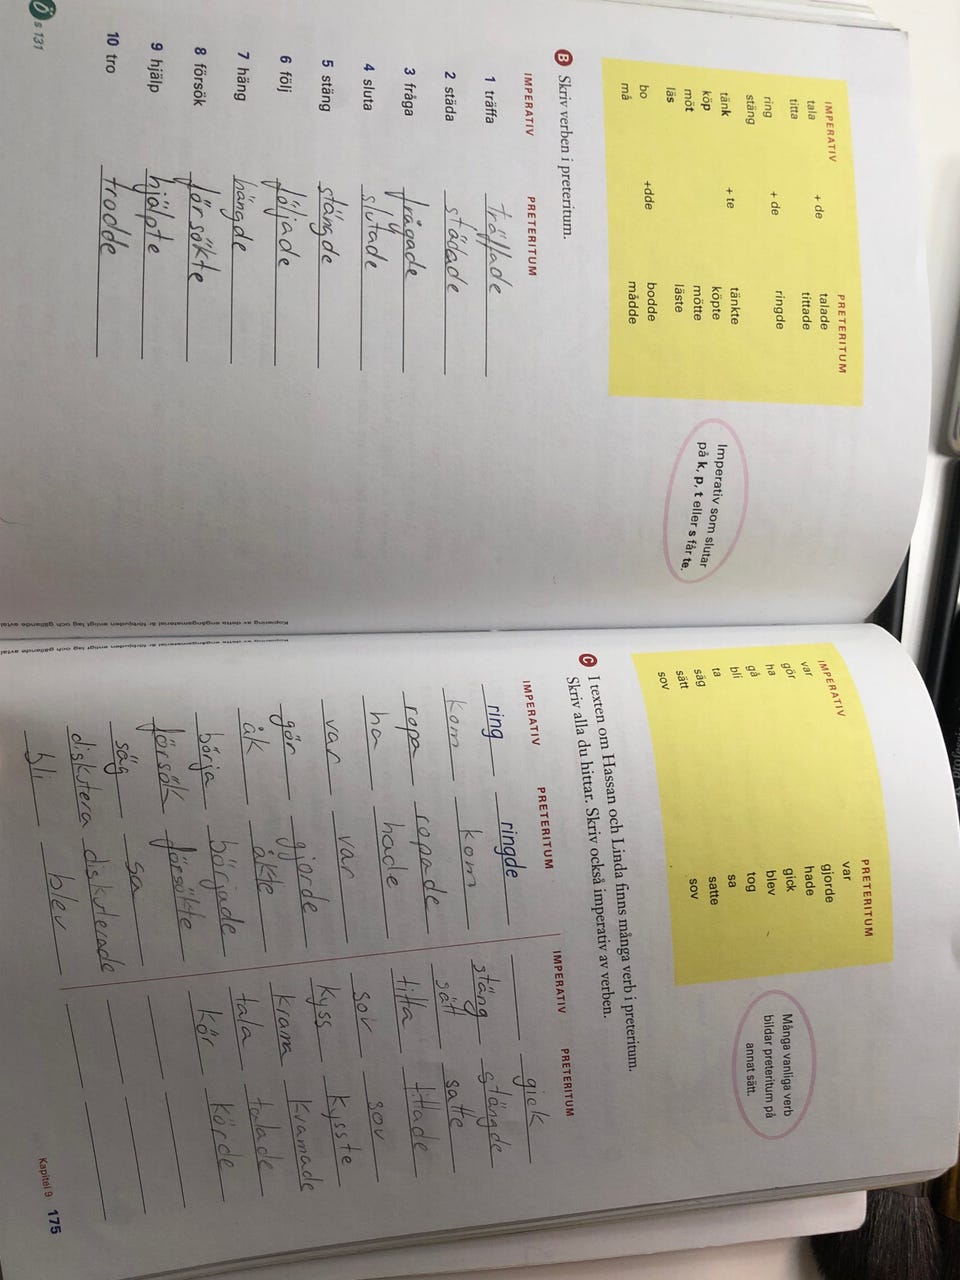 IMPERATIV PRETERITUM
tala + de talade
titta tittade
ring + de ringde
stäng
tänk + te tänkte
köp köpte
möt mötte
läs läste
bo +dde bodde
må mådde
Imperativ som slutar
på k, p, t eller s får te.
B Skriv verben i preteritum.
IMPERATIV PRETERITUM
1 träffa träffade
2 städa städade
3 fråga frågade
4 sluta slutade
5 stäng stängde
6 följ följade
7 häng hängde
8 försök försökte
9 hjälp hjälpte
10 tro trodde
Ö s 131
Kopiering av detta engångsmaterial är förbjuden enligt lag och gällande avtal
IMPERATIV PRETERITUM
var var
gör gjorde
ha hade
gå gick
bli blev
ta tog
säg sa
sätt satte
sov sov
Många vanliga verb
bildar preteritum på
annat sätt.
C I texten om Hassan och Linda finns många verb i preteritum.
Skriv alla du hittar. Skriv också imperativ av verben.
IMPERATIV PRETERITUM IMPERATIV PRETERITUM
ring ringde gick
kom kom stäng stängde
ropa ropade sätt satte
ha hade titta tittade
var var sov sov
gör gjorde kyss kysste
åk åkte krama kramade
börja började tala talade
försök försökte kör körde
säg sa
diskutera diskuterade
bli blev
Kopiering av detta engångsmaterial är förbjuden enligt lag och gällande avtal
Kapitel 9 175